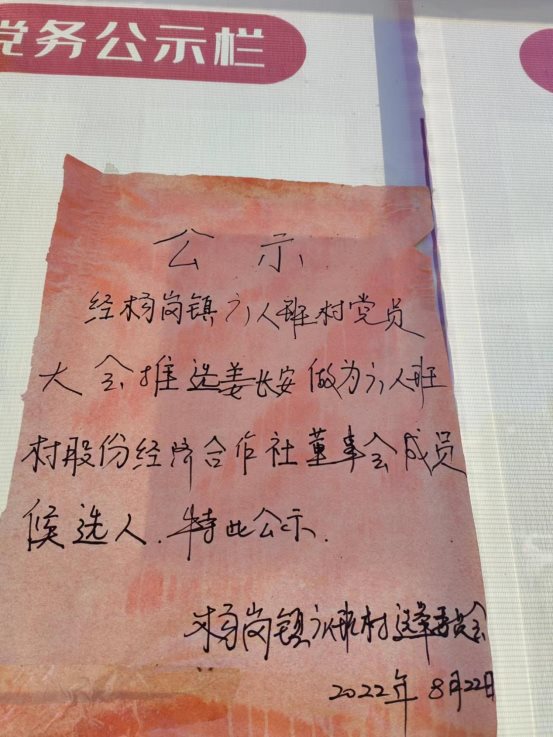 党务公示栏
公示
经杨岗镇六人班村党员
大会推选姜长安做为六人班
村股份经济合作社董事会成员
候选人.特此公示.
杨岗镇六人班村选举委员会
2022年8月22日